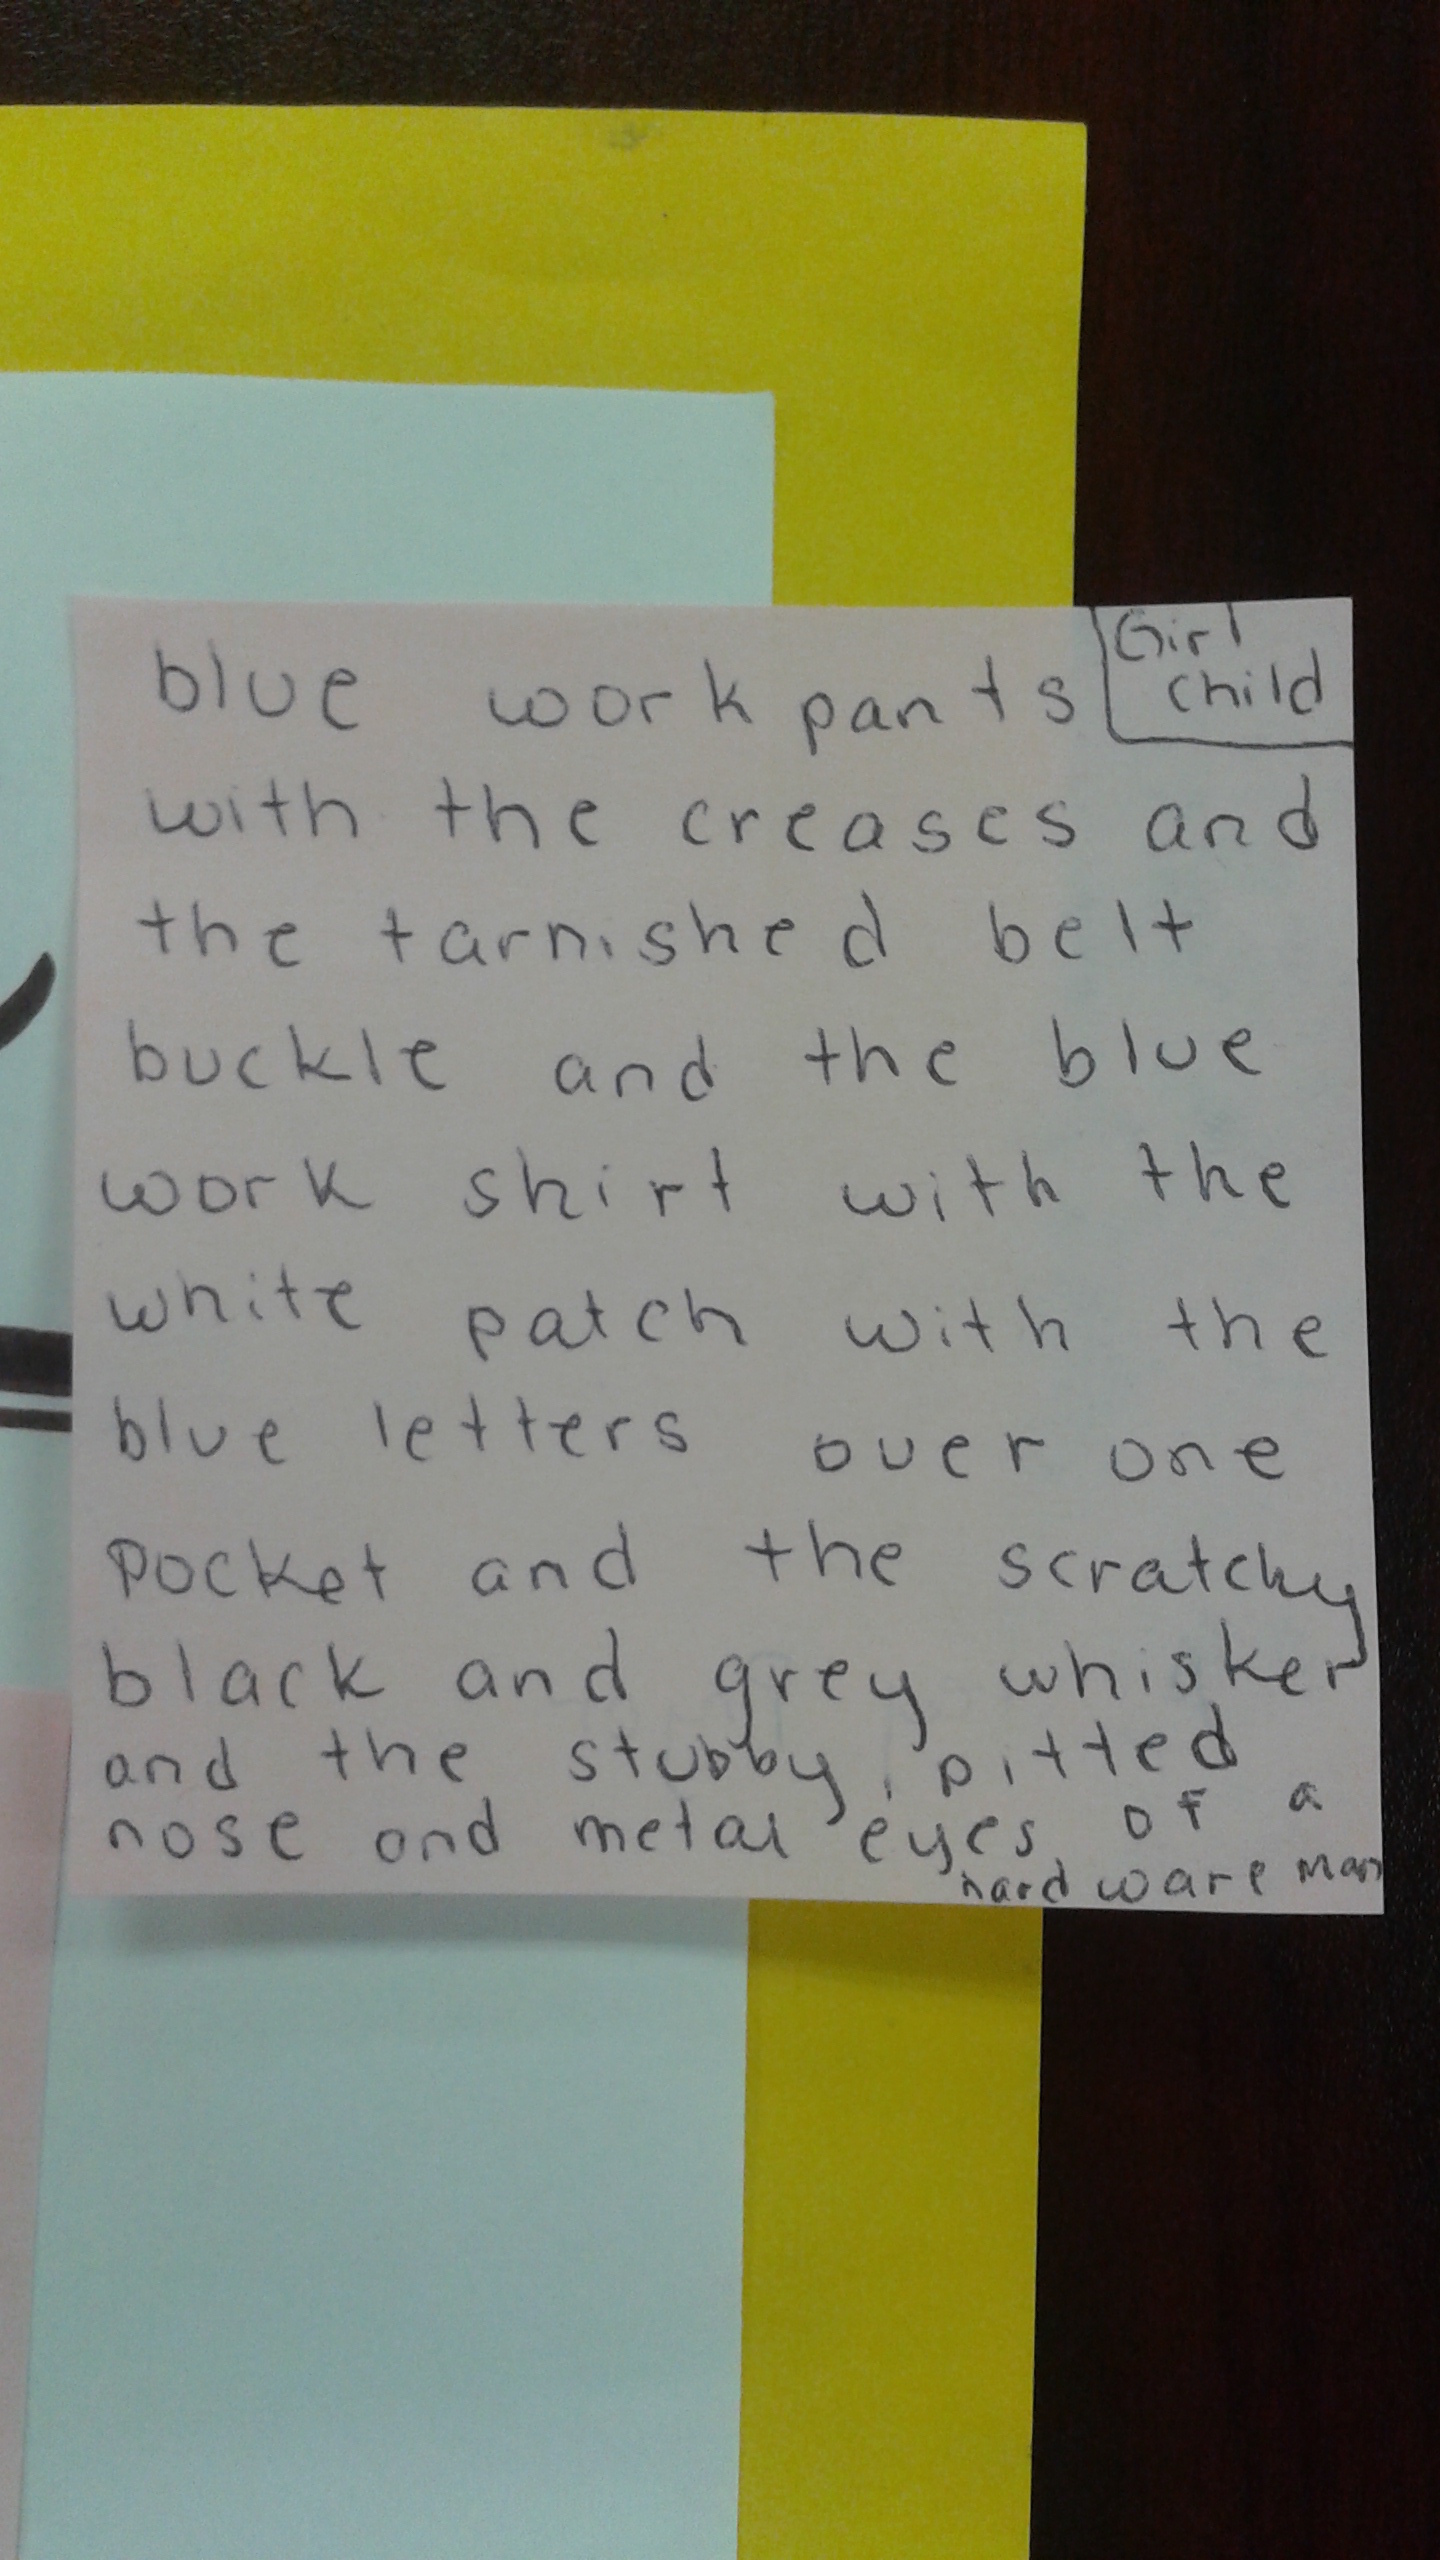 Girl
child
blue work pants
with the creases and
the tarnished belt
buckle and the blue
work shirt with the
white patch with the
blue letters over one
pocket and the scratchy
black and grey whisker
and the stubby, pitted
nose and metal eyes of a
hard ware man